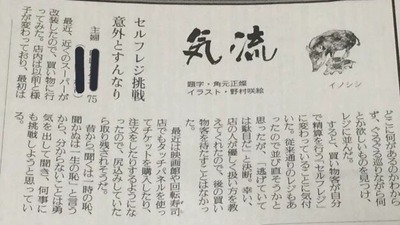 気流
題字・角元正燦
イラスト・野村咲絵
イノシシ
セルフレジ挑戦
意外とすんなり
主婦
75
最近、近くのスーパーが
改装したので、買い物に行
ってみた。店内は以前と様
子が変わっており、最初は
どこに何があるのかわから
ず、ぐるぐる巡りながら何
とか欲しいものを見つけ、
レジに並んだ。
すると、買い物客が自分
で精算を行うセルフレジ
に変わっていることに気付
いた。従来通りのレジもあ
ったので並び直そうかと
思ったが、「逃げていて
は駄目だ」と決断。幸い、
店の人が優しく扱い方を教
えてくれたので、後の買い
物客を待たすことはなかっ
た。
最近は映画館や回転寿司
店でもタッチパネルを使っ
てチケットを購入したり、
注文をしたりするようにな
ったので、尻込みしていた
ら取り残されそうだ。
昔から、「聞くは一時の恥、
聞かぬは一生の恥」と言う
から、分からないことは勇
気を出して聞き、何事に
も挑戦しようと思ってい
る。